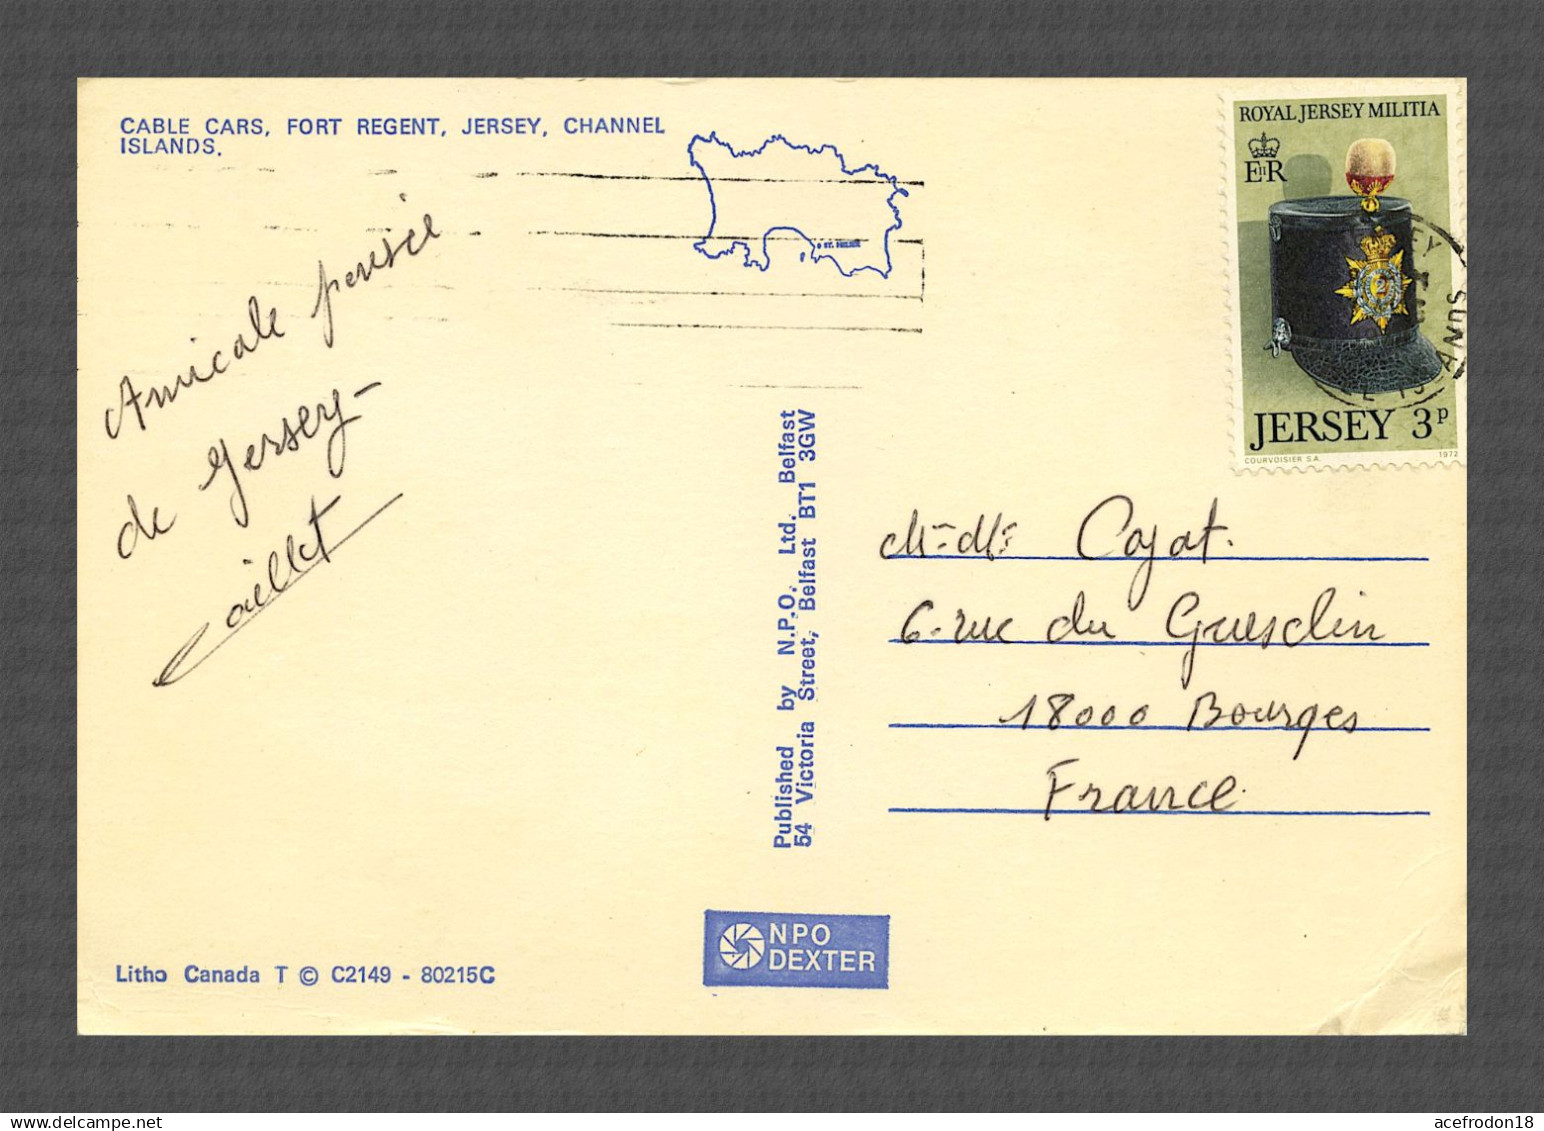 CABLE CARS, FORT REGENT, JERSEY, CHANNEL
ISLANDS.
Amicale pensée
de Jersey -
Caillet
ROYAL JERSEY MILITIA
E II R
2
JERSEY 3p
COURVOISIER S.A. 1972
Published by N.P.O. Ltd. Belfast
54 Victoria Street, Belfast BT1 3GW
6 rue du Guesclin
18000 Bourges
France
NPO
DEXTER
Litho Canada T © C2149 - 80215C
delcampe.net
acefrodon18